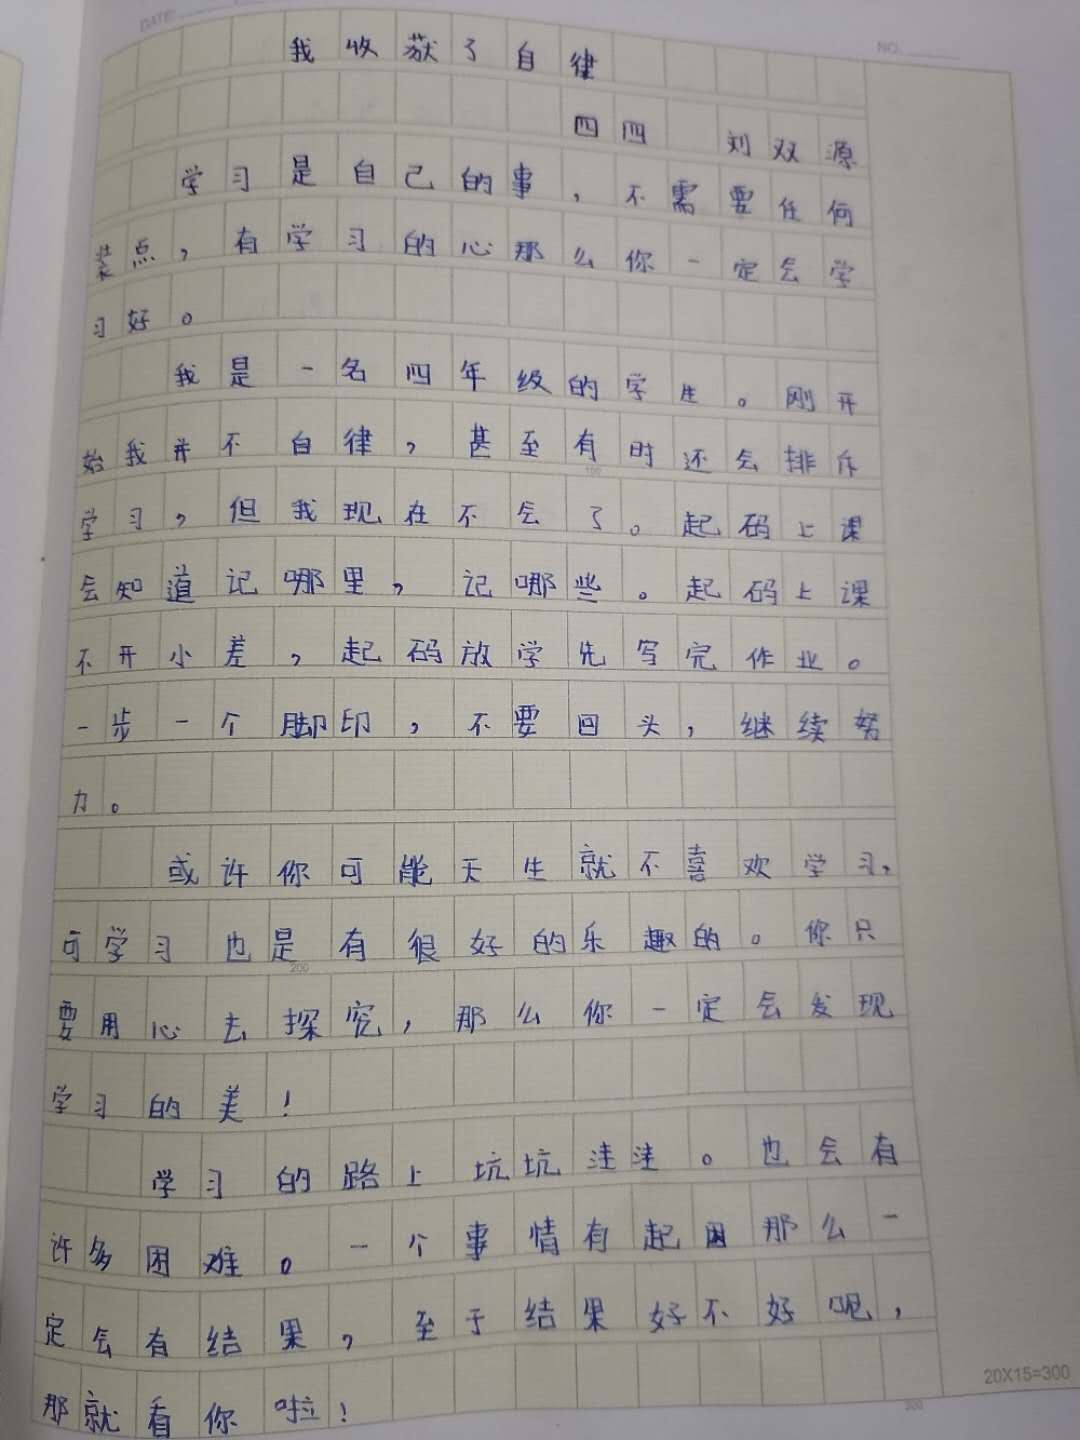 DATE:
NO.
我收获了自律
四四 刘双源
学习是自己的事，不需要任何
装点，有学习的心那么你一定会学
习好。
我是一名四年级的学生。刚开
始我并不自律，甚至有时还会排斥
100
学习，但我现在不会了。起码上课
会知道记哪里，记哪些。起码上课
不开小差，起码放学先写完作业。
一步一个脚印，不要回头，继续努
力。
或许你可能天生就不喜欢学习，
可学习也是有很好的乐趣的。你只
200
要用心去探究，那么你一定会发现
学习的美！
学习的路上坑坑洼洼。也会有
许多困难。一个事情有起因那么一
定会有结果，至于结果好不好呢，
那就看你啦！
20X15=300
300